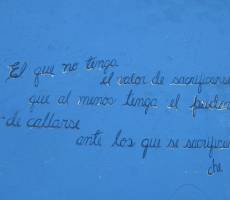 El que no tenga
el valor de sacrificarse
que al menos tenga el
de callarse
ante los que se sacrifican
che